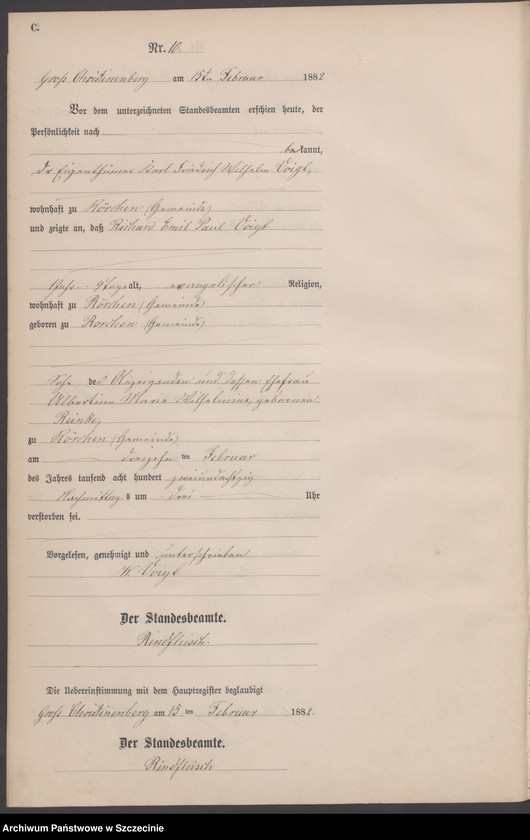 C.
Nr. 10.
Gross Christinenberg am 15ten Februar 1882.
Vor dem unterzeichneten Standesbeamten erschien heute, der
Persönlichkeit nach
bekannt,
der Eigenthümer Karl Friedrich Wilhelm Voigt,
wohnhaft zu Rörchen (Gemeinde)
und zeigte an, daß Richard Emil Paul Voigt
1 Jahr 9 Tage alt, evangelischer Religion,
wohnhaft zu Rörchen (Gemeinde)
geboren zu Rörchen (Gemeinde)
Sohn des Anzeigenden und dessen Ehefrau
Albertine Marie Wilhelmine, geborenen
Reinke,
zu Rörchen (Gemeinde)
am dreizehn ten Februar
des Jahres tausend acht hundert zweiundachtzig
Nachmittags um drei Uhr
verstorben sei.
Vorgelesen, genehmigt und unterschrieben
W. Voigt
Der Standesbeamte.
Rindfleisch.
Die Uebereinstimmung mit dem Hauptregister beglaubigt
Gross Christinenberg am 15 ten Februar 1882.
Der Standesbeamte.
Rindfleisch
Archiwum Państwowe w Szczecinie